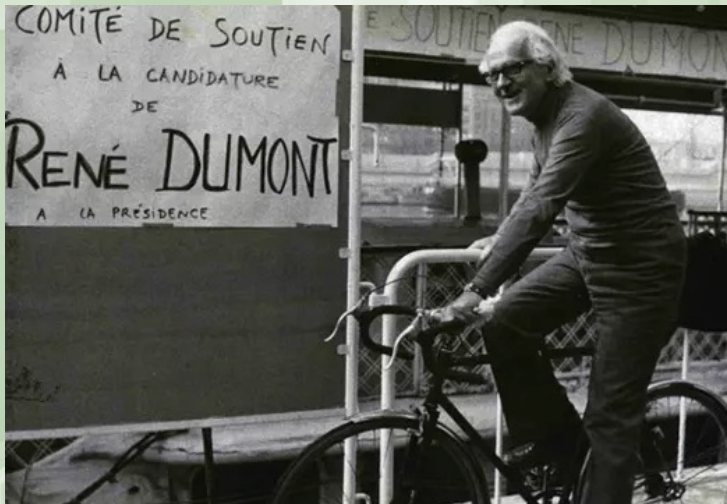 COMITÉ DE SOUTIEN
À LA CANDIDATURE
DE
RENÉ DUMONT
A LA PRÉSIDENCE
E SOUTIEN RENE DUMONT